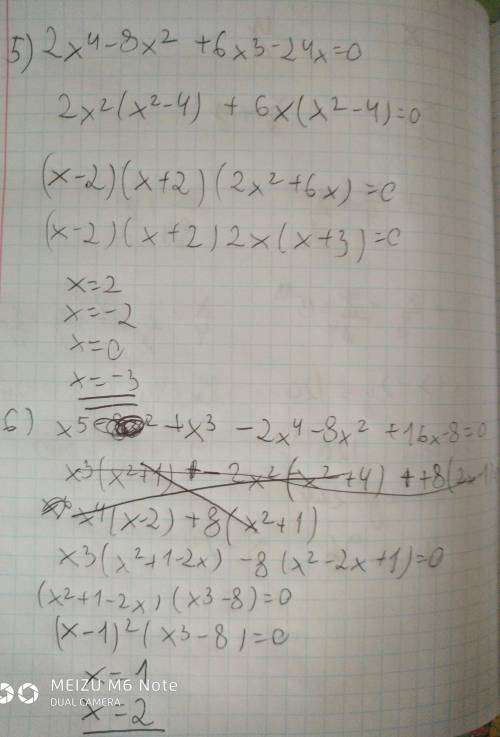 5) 2x⁴-8x² +6x³-24x=0
2x²(x²-4) + 6x(x²-4)=0
(x-2)(x+2)(2x²+6x)=0
(x-2)(x+2)2x(x+3)=0
x=2
x=-2
x=0
x=-3
6) x⁵ +x³ -2x⁴-8x² +16x-8=0
x³(x²+1) - 2x²(x²+4) + +8(2x-1)
x⁴(x-2) +8(x²+1)
x³(x²+1-2x) -8(x²-2x+1)=0
(x²+1-2x)(x³-8)=0
(x-1)²(x³-8)=0
x=1
x=2
MEIZU M6 Note
DUAL CAMERA